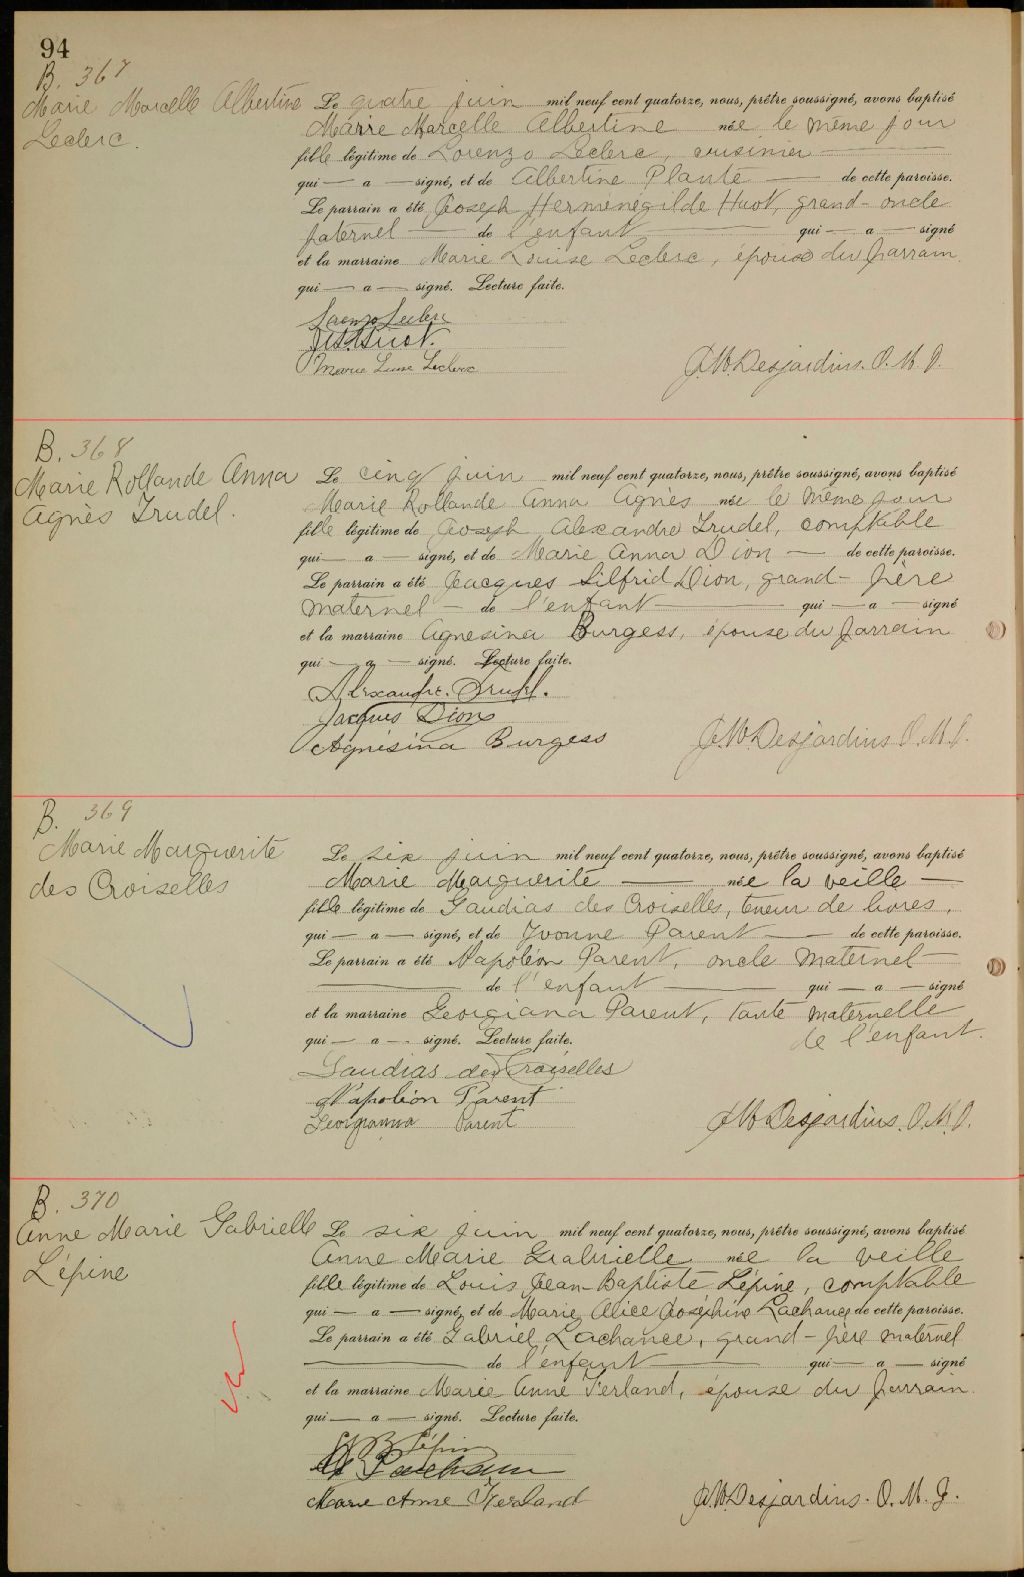 94
B. 367
Marie Marcelle Albertine
Leclerc.
Le quatre juin mil neuf cent quatorze, nous, prêtre soussigné, avons baptisé
Marie Marcelle Albertine née le même jour
fille légitime de Lorenzo Leclerc, cuisinier
qui — a — signé, et de Albertine Plante — de cette paroisse.
Le parrain a été Joseph Herménégilde Huot, grand-oncle
paternel — de l'enfant — qui — a — signé
et la marraine Marie Louise Leclerc, épouse du parrain.
qui — a — signé. Lecture faite.
Lorenzo Leclerc
J. H. Huot.
Marie Luise Leclerc
J. W. Desjardins. O. M. I.
B. 368
Marie Rollande Anna
Agnès Trudel.
Le cinq juin mil neuf cent quatorze, nous, prêtre soussigné, avons baptisé
Marie Rollande Anna Agnès née le même jour
fille légitime de Joseph Alexandre Trudel, comptable
qui — a — signé, et de Marie Anna Dion — de cette paroisse.
Le parrain a été Jacques Silfrid Dion, grand-père
maternel — de l'enfant — qui — a — signé
et la marraine Agnesina Burgess, épouse du parrain
qui — a — signé. Lecture faite.
Alexandre Trudel.
Jacques Dion
Agnésina Burgess
J. W. Desjardins O. M. I.
B. 369
Marie Marguerite
des Croiselles
Le six juin mil neuf cent quatorze, nous, prêtre soussigné, avons baptisé
Marie Marguerite — née la veille —
fille légitime de Gaudias des Croiselles, teneur de livres,
qui — a — signé, et de Yvonne Parent — de cette paroisse.
Le parrain a été Napoléon Parent, oncle maternel —
— de l'enfant — qui — a — signé
et la marraine Georgiana Parent, tante maternelle
de l'enfant.
qui — a — signé. Lecture faite.
Gaudias des Croiselles
Napoléon Parent
Georgianna Parent
J. W. Desjardins. O. M. I.
B. 370
Anne Marie Gabrielle
Lépine
Le six juin mil neuf cent quatorze, nous, prêtre soussigné, avons baptisé
Anne Marie Gabrielle née la veille
fille légitime de Louis Jean-Baptiste Lépine, comptable
qui — a — signé, et de Marie Alice Joséphine Lachance de cette paroisse.
Le parrain a été Gabriel Lachance, grand-père maternel
— de l'enfant — qui — a — signé
et la marraine Marie Anne Ferland, épouse du parrain.
qui — a — signé. Lecture faite.
J B Lépine
Marie Anne Ferland
J. W. Desjardins. O. M. I.